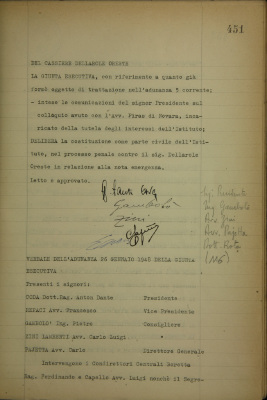 451
DEL CASSIERE DELLAROLE ORESTE
LA GIUNTA ESECUTIVA, con riferimento a quanto già
formò oggetto di trattazione nell'adunanza 5 corrente;
- intese le comunicazioni del signor Presidente sul
colloquio avuto con l'Avv. Piras di Novara, inca-
ricato della tutela degli interessi dell'Istituto;
DELIBERA la costituzione come parte civile dell'Isti-
tuto, nel processo penale contro il sig. Dellarole
Oreste in relazione alla nota emergenza.
Letto e approvato.
VERBALE DELL'ADUNANZA 26 GENNAIO 1948 DELLA GIUNTA
ESECUTIVA
Presenti i signori:
CODA Dott.Rag. Anton Dante Presidente
Avv. Francesco Vice Presidente
Ing. Pietro Consigliere
ZINI LAMBERTI Avv. Carlo Luigi "
PAJETTA Avv. Carlo Direttore Generale
Intervengono i Condirettori Centrali Beretta
Rag. Ferdinando e Capello Avv. Luigi nonchè il Segre-